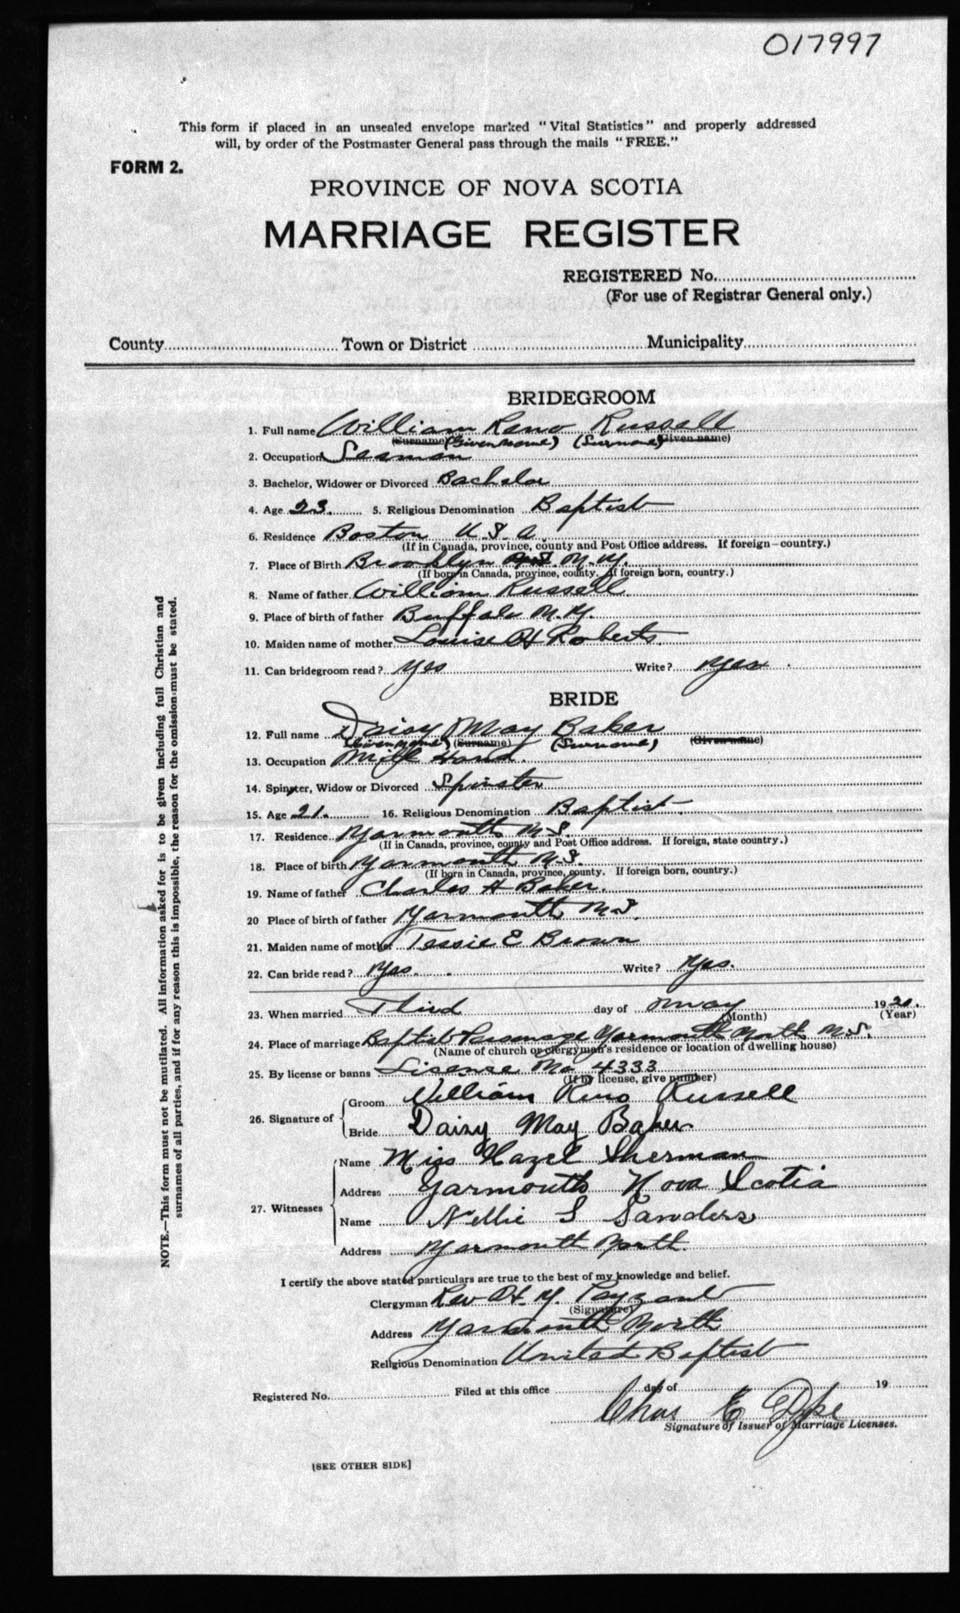 017997
This form if placed in an unsealed envelope marked "Vital Statistics" and properly addressed
will, by order of the Postmaster General pass through the mails "FREE."
FORM 2.
PROVINCE OF NOVA SCOTIA
MARRIAGE REGISTER
REGISTERED No.
(For use of Registrar General only.)
County Town or District Municipality
BRIDEGROOM
1. Full name William Reno Russell
(Surname) (Given name) (Surname) (Given name)
2. Occupation Seaman
3. Bachelor, Widower or Divorced Bachelor
4. Age 23. 5. Religious Denomination Baptist
6. Residence Boston U.S.A.
(If in Canada, province, county and Post Office address. If foreign—country.)
7. Place of Birth Brooklyn N.Y.
(If born in Canada, province, county. If foreign born, country.)
8. Name of father William Russell
9. Place of birth of father Buffalo N.Y.
10. Maiden name of mother Louise H Roberts
11. Can bridegroom read? Yes Write? Yes
BRIDE
12. Full name Daisy May Baker
(Given name) (Surname) (Surname) (Given name)
13. Occupation Mill Hand.
14. Spinster, Widow or Divorced Spinster
15. Age 21. 16. Religious Denomination Baptist
17. Residence Yarmouth N.S.
(If in Canada, province, county and Post Office address. If foreign, state country.)
18. Place of birth Yarmouth N.S.
(If born in Canada, province, county. If foreign born, country.)
19. Name of father Charles H Baker.
20 Place of birth of father Yarmouth N.S.
21. Maiden name of mother Tessie E Brown
22. Can bride read? Yes. Write? Yes.
23. When married Third day of May 1920.
(Month) (Year)
24. Place of marriage Baptist Parsonage Yarmouth North N.S.
(Name of church or clergyman's residence or location of dwelling house)
25. By license or banns Lisense No 4333
(If by license, give number)
26. Signature of Groom William Reno Russell
Bride Daisy May Baker
27. Witnesses Name Miss Hazel Sherman
Address Yarmouth Nova Scotia
Name Nellie S Sanders
Address Yarmouth North
I certify the above stated particulars are true to the best of my knowledge and belief.
Clergyman Rev H. Y. Payzant
(Signature)
Address Yarmouth North
Religious Denomination United Baptist
Registered No. Filed at this office day of 19
Chas E
Signature of Issuer of Marriage Licenses.
[SEE OTHER SIDE]
NOTE.—This form must not be mutilated. All information asked for is to be given including full Christian and
surnames of all parties, and if for any reason this is impossible, the reason for the omission must be stated.